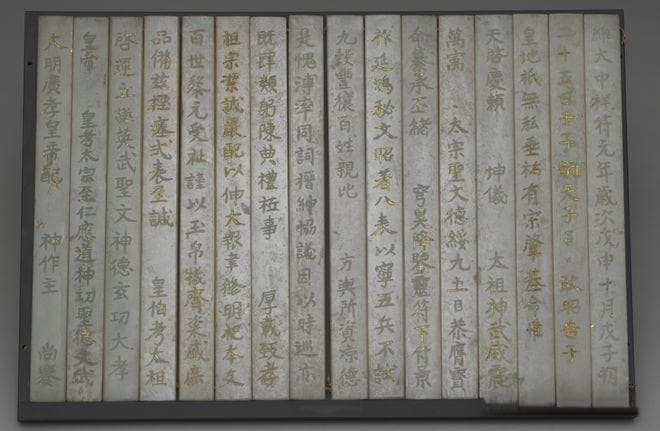 維大中祥符元年歲次戊申十月戊子朔
二十五日壬子嗣天子臣 敢昭告于
皇地祇無私垂祐有宋肇基命惟
天啓慶賴 坤儀 太祖神武威震
萬寓 太宗聖文德綏九土臣恭膺寶
命纂承丕緒 穹昊降 靈符下付景
祚延鴻秘文昭著八表以寧五兵不試
九穀豐穰百姓親比 方輿所資涼德
是愧溥率同詞搢紳協議因以時巡亦
既肆類躬陳典禮祗事 厚載致孝
祖宗潔誠嚴配以伸大報聿修明祀本支
百世黎元受祉謹以玉帛犧齊粢盛庶
品備茲禋瘞式表至誠 皇伯考太祖
啓運立極英武聖文神德玄功大孝
皇帝 皇考太宗至仁應道神功聖德文武
大明廣孝皇帝配 神作主 尚饗